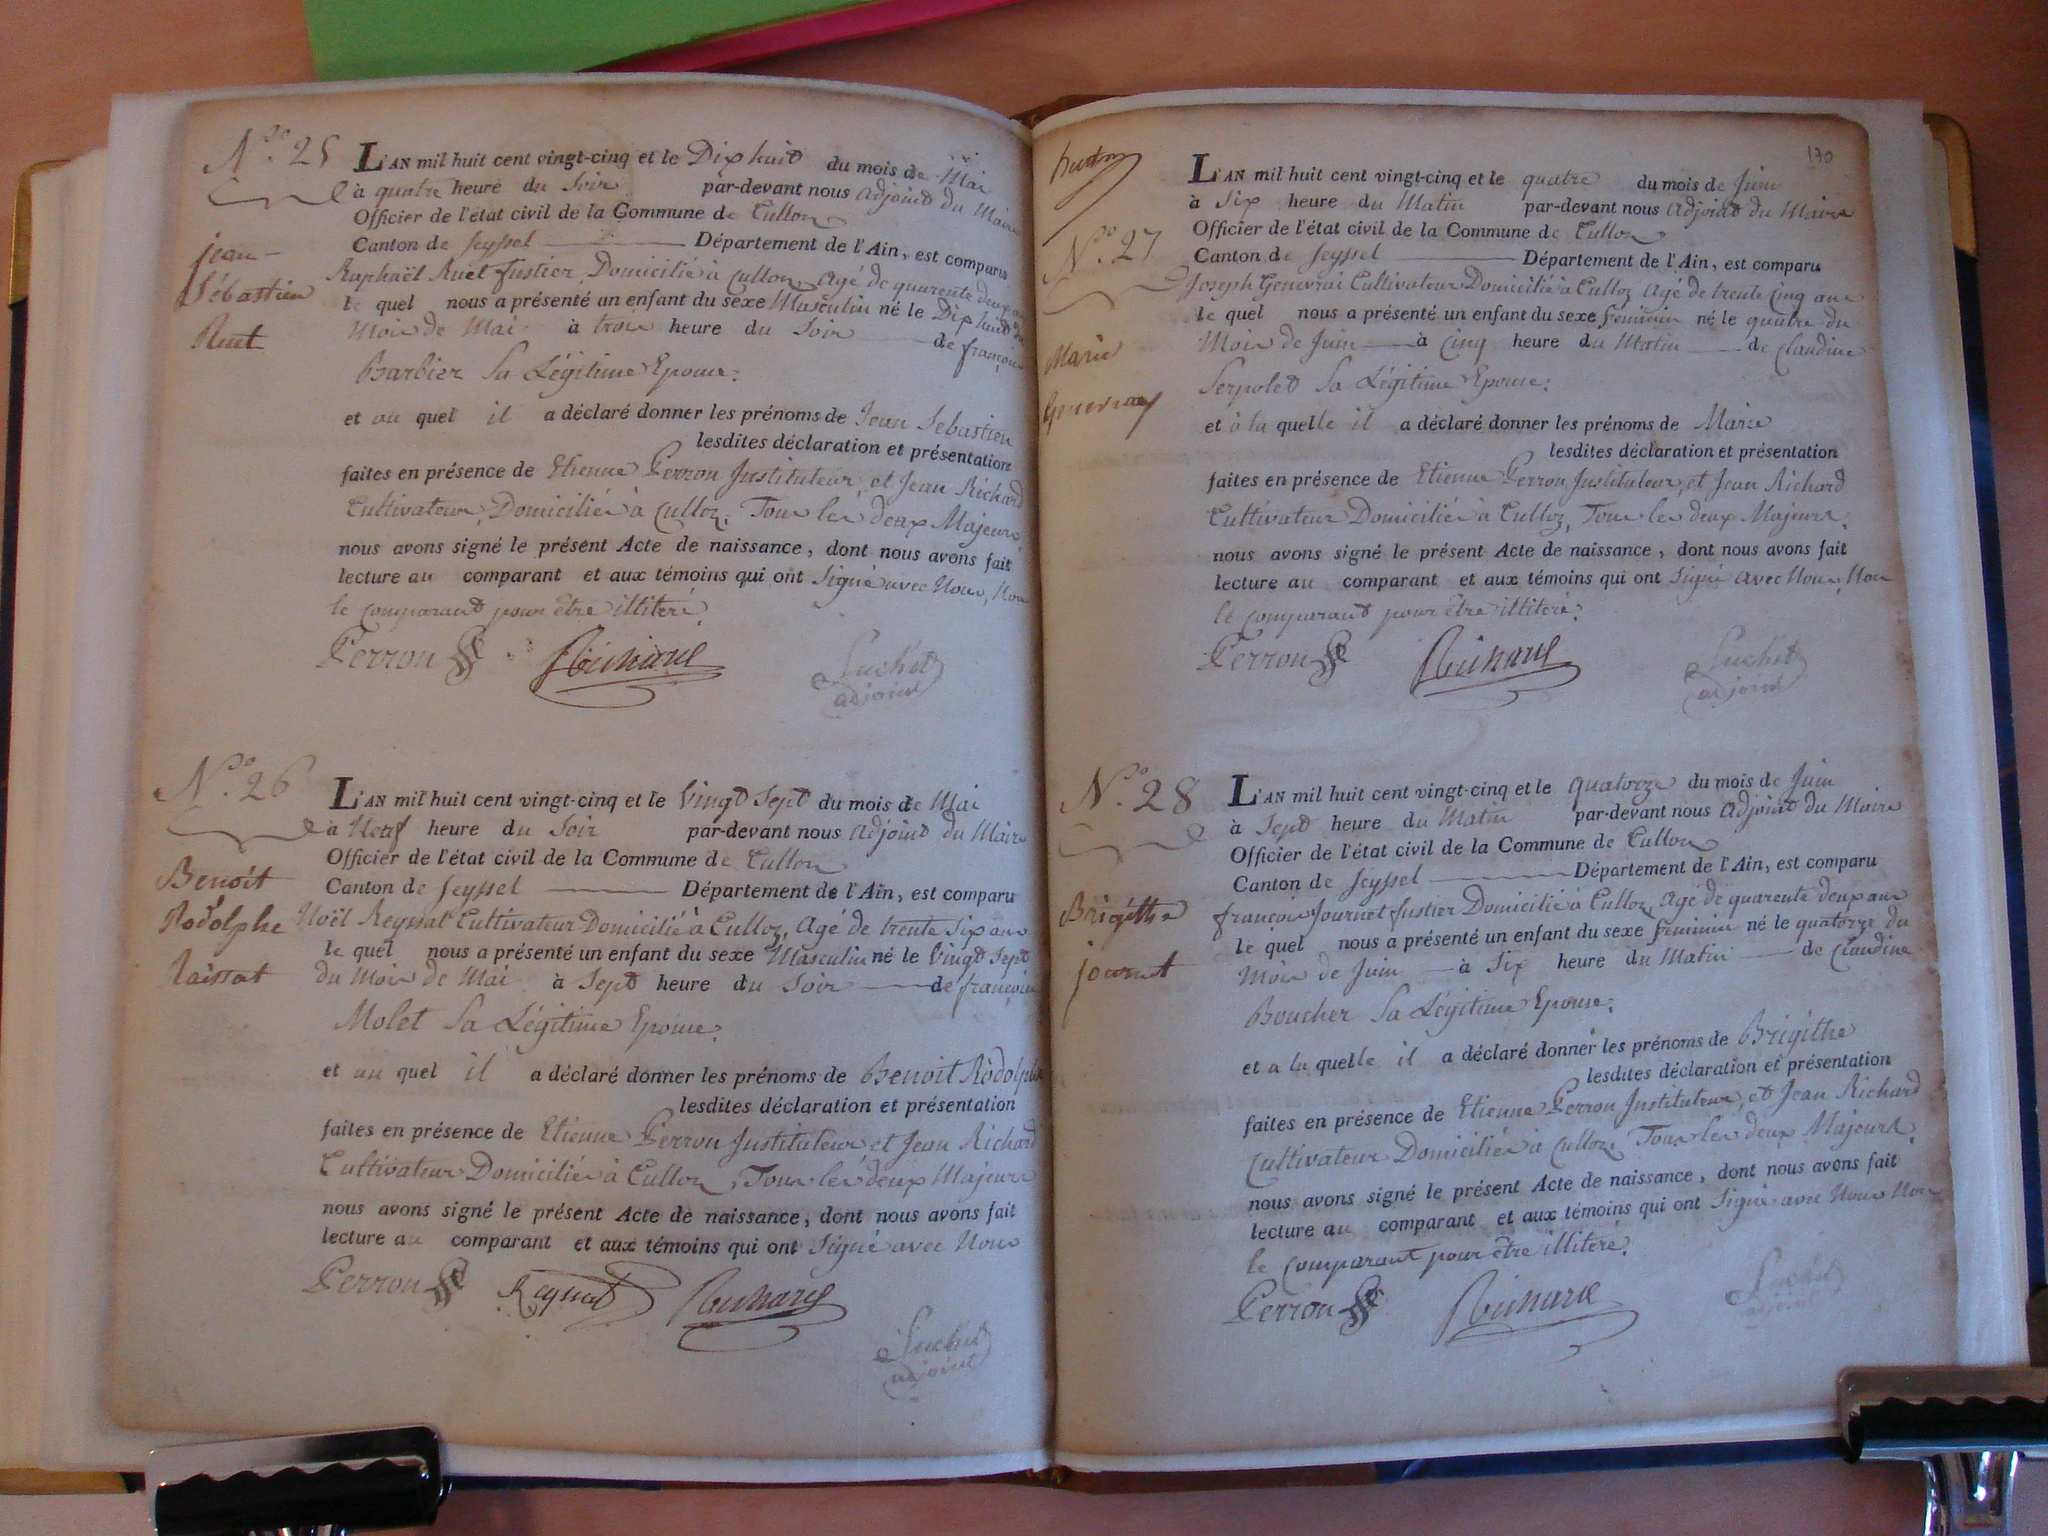 N.o 25
jean-
Sébastien
Ruet
L'AN mil huit cent vingt-cinq et le Dix huit du mois de Mai
à quatre heure du Soir par-devant nous adjoint du Maire
Officier de l'état civil de la Commune de Culloz
Canton de Seyssel Département de l'Ain, est comparu
Raphaël Ruet fustier Domicilié à Culloz Agé de quarente deux ans
le quel nous a présenté un enfant du sexe Masculin né le Dix huit du
Mois de Mai à trois heure du Soir de françoise
Barbier Sa Légitime Epouse.
et au quel il a déclaré donner les prénoms de Jean Sébastien
lesdites déclaration et présentation
faites en présence de Etienne Perron Instituteur et Jean Richard
Cultivateur, Domiciliés à Culloz, Tous les deux Majeurs,
nous avons signé le présent Acte de naissance, dont nous avons fait
lecture au comparant et aux témoins qui ont Signé avec Nous, Non
le comparant pour être illiteré.
Perron Richard Suchet
adjoint
N.o 26
Benoit
Rodolphe
Raissat
L'AN mil huit cent vingt-cinq et le Vingt Sept du mois de Mai
à Neuf heure du Soir par-devant nous adjoint du Maire
Officier de l'état civil de la Commune de Culloz
Canton de Seyssel Département de l'Ain, est comparu
Noël Reyssat Cultivateur Domicilié à Culloz, Agé de trente Six ans
le quel nous a présenté un enfant du sexe Masculin né le Vingt Sept
du Mois de Mai à Sept heure du Soir de françoise
Molet Sa Légitime Epouse.
et au quel il a déclaré donner les prénoms de Benoit Rodolphe
lesdites déclaration et présentation
faites en présence de Etienne Perron Instituteur et Jean Richard
Cultivateur Domiciliés à Culloz, Tous les deux Majeurs
nous avons signé le présent Acte de naissance, dont nous avons fait
lecture au comparant et aux témoins qui ont Signé avec Nous
Perron Richard
Suchet
adjoint
170
N.o 27
Marie
Genevray
L'AN mil huit cent vingt-cinq et le quatre du mois de Juin
à Six heure du Matin par-devant nous adjoint du Maire
Officier de l'état civil de la Commune de Culloz
Canton de Seyssel Département de l'Ain, est comparu
Joseph Genevrai Cultivateur Domicilié à Culloz Agé de trente Cinq ans
le quel nous a présenté un enfant du sexe feminin né le quatre du
Mois de Juin à Cinq heure du Matin de Claudine
Serpolet Sa Légitime Epouse.
et à la quelle il a déclaré donner les prénoms de Marie
lesdites déclaration et présentation
faites en présence de Etienne Perron Instituteur, et Jean Richard
Cultivateur Domiciliés à Culloz, Tous les deux Majeurs.
nous avons signé le présent Acte de naissance, dont nous avons fait
lecture au comparant et aux témoins qui ont Signé avec Nous, Non
le comparant pour être illiteré.
Perron Richard Suchet
adjoint
N.o 28
Brigithe
journet
L'AN mil huit cent vingt-cinq et le quatorze du mois de Juin
à Sept heure du Matin par-devant nous adjoint du Maire
Officier de l'état civil de la Commune de Culloz
Canton de Seyssel Département de l'Ain, est comparu
françois Journet fustier Domicilié à Culloz, Agé de quarente deux ans
le quel nous a présenté un enfant du sexe feminin né le quatorze du
Mois de Juin à Six heure du Matin de Claudine
Boucher Sa Légitime Epouse.
et a la quelle il a déclaré donner les prénoms de Brigithe
lesdites déclaration et présentation
faites en présence de Etienne Perron Instituteur, et Jean Richard
Cultivateur Domiciliés à Culloz, Tous les deux Majeurs.
nous avons signé le présent Acte de naissance, dont nous avons fait
lecture au comparant et aux témoins qui ont Signé avec Nous Non
le comparant pour être illiteré.
Perron Richard Suchet
adjoint